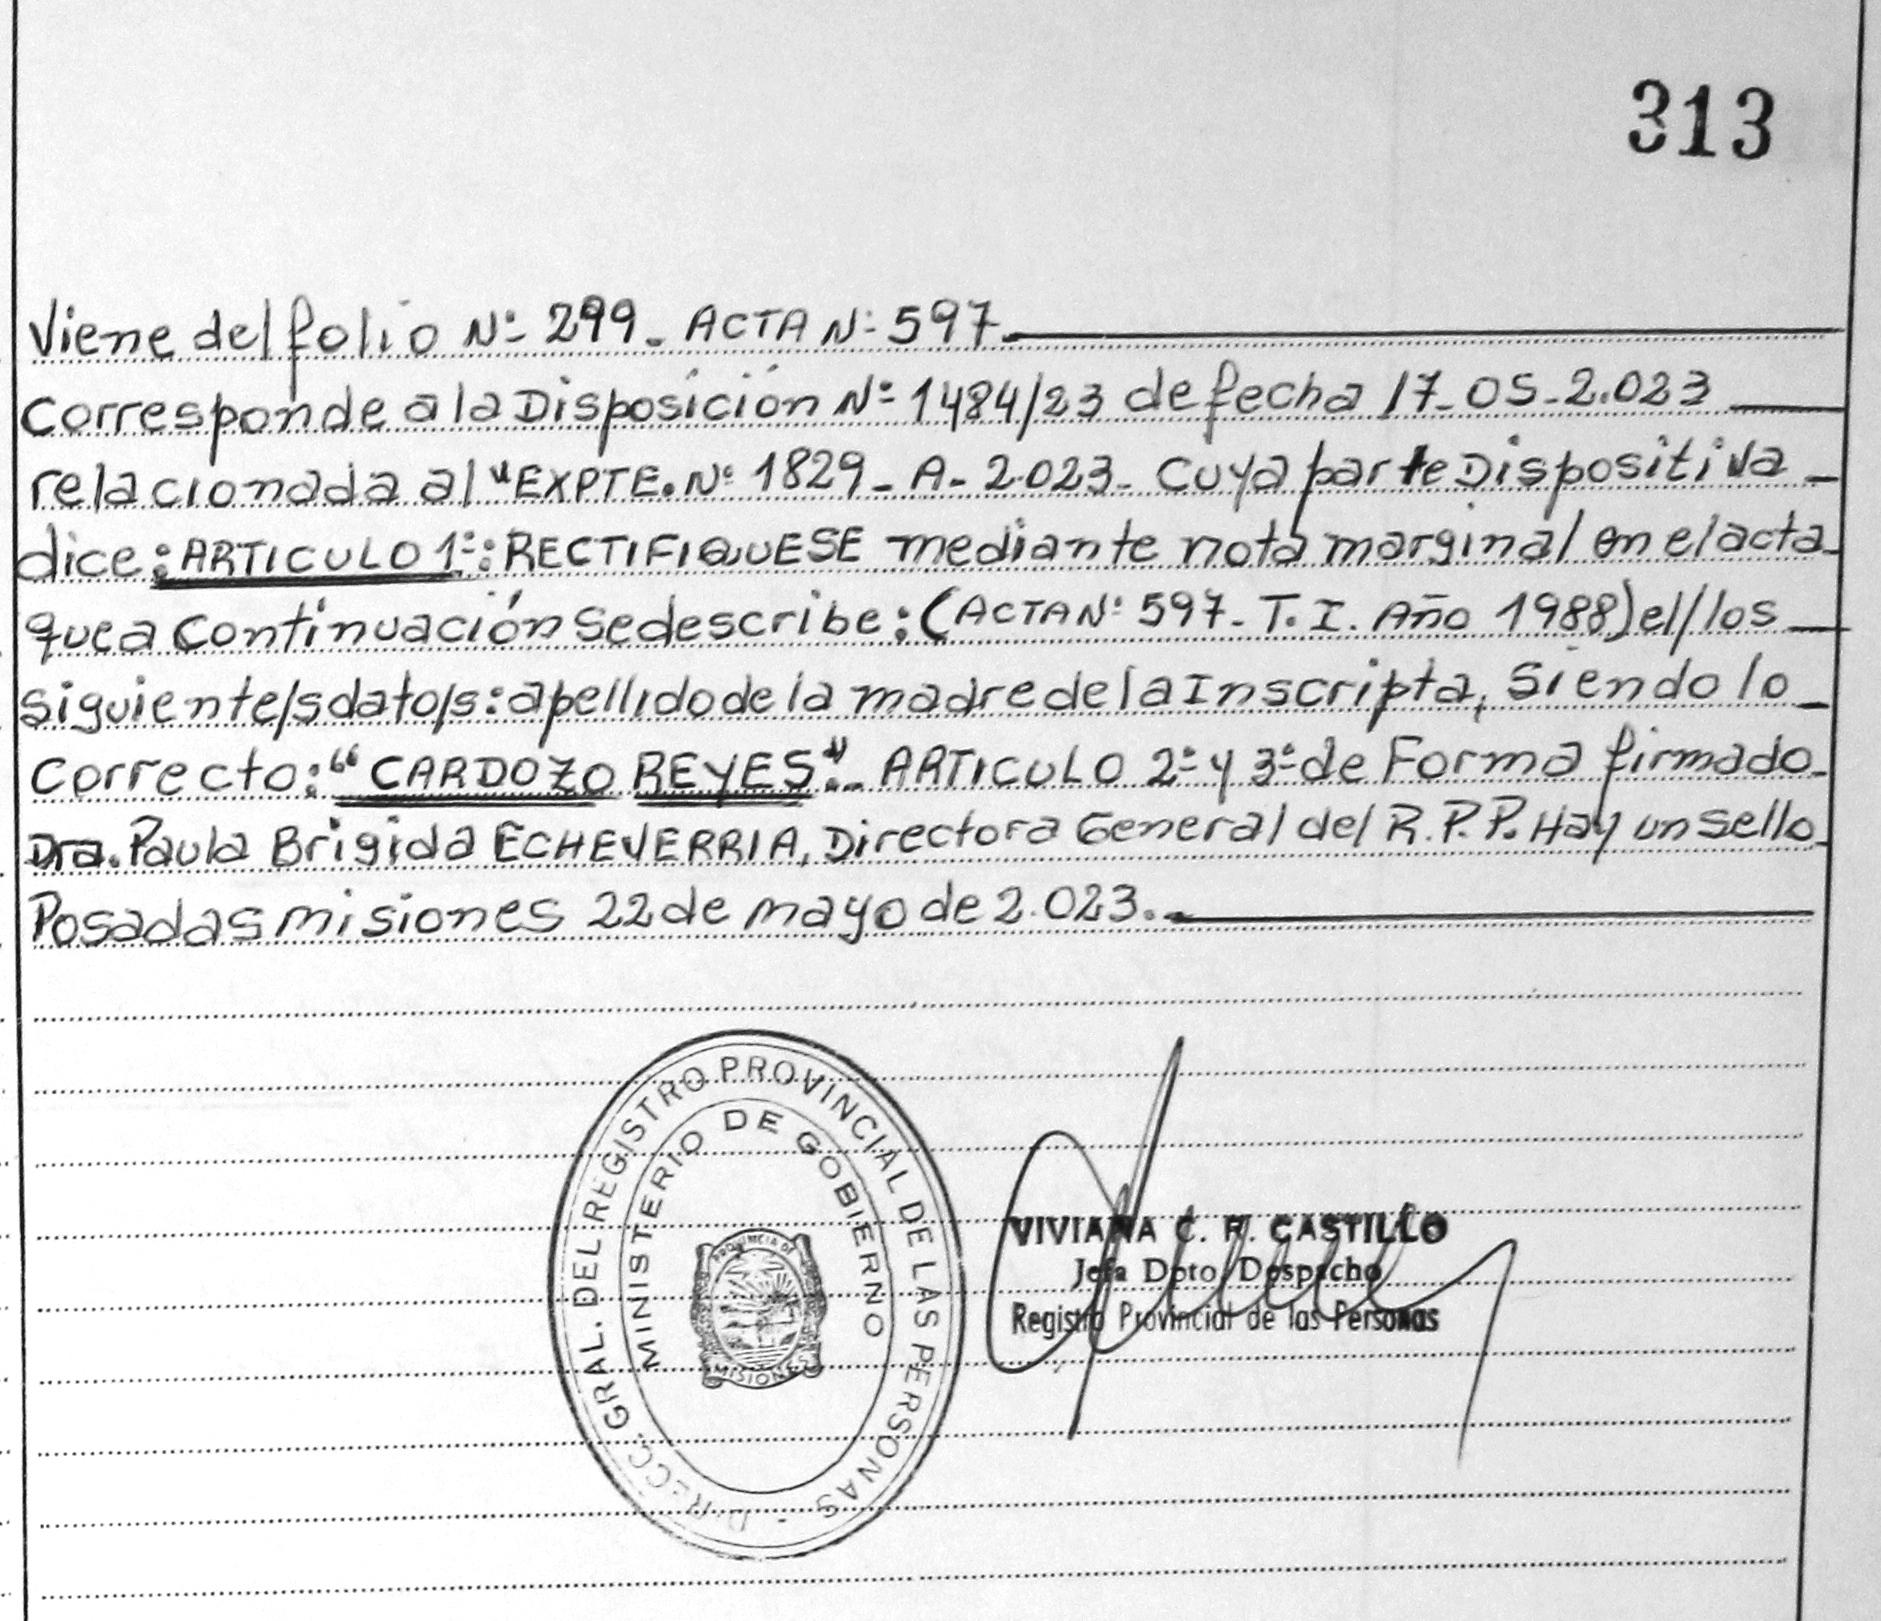 313
Viene del folio Nº 299_ ACTA Nº 597
Corresponde a la Disposición Nº 1484/23 de fecha 17_05_2.023
relacionada al "EXPTE. Nº 1829_ A_ 2.023_ Cuya parte Dispositiva
dice: ARTICULO 1º: RECTIFIQUESE mediante nota marginal en el acta
que a Continuación Se describe: (ACTA Nº 597_ T. I. Año 1988) el/los
siguiente/s dato/s: apellido de la madre de la Inscripta, Siendo lo
Correcto: "CARDOZO REYES"._ ARTICULO 2º y 3º de Forma firmado
Dra. Paula Brigida ECHEVERRIA, Directora General del R.P.P. Hay un sello
Posadas misiones 22 de mayo de 2.023._
DIRECC. GRAL. DEL REGISTRO PROVINCIAL DE LAS PERSONAS -
MINISTERIO DE GOBIERNO
PROVINCIA DE
MISIONES
VIVIANA C. R. CASTILLO
Jefa Dpto. Despacho
Registro Provincial de las Personas